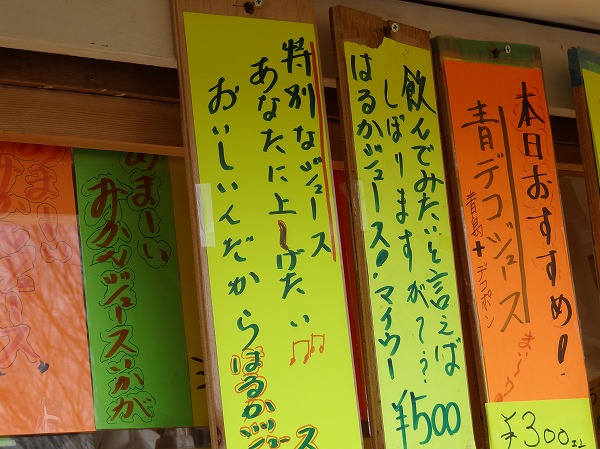 本日おすすめ!
青デコジュース
青島+デコポン
¥300
飲んでみたいと言えば
しぼりますが?
はるかジュース!マイウー
¥500
特別なジュース
あなたに上げたい
おいしいんだから
はるかジュース
あまーい
みかんジュースいかが